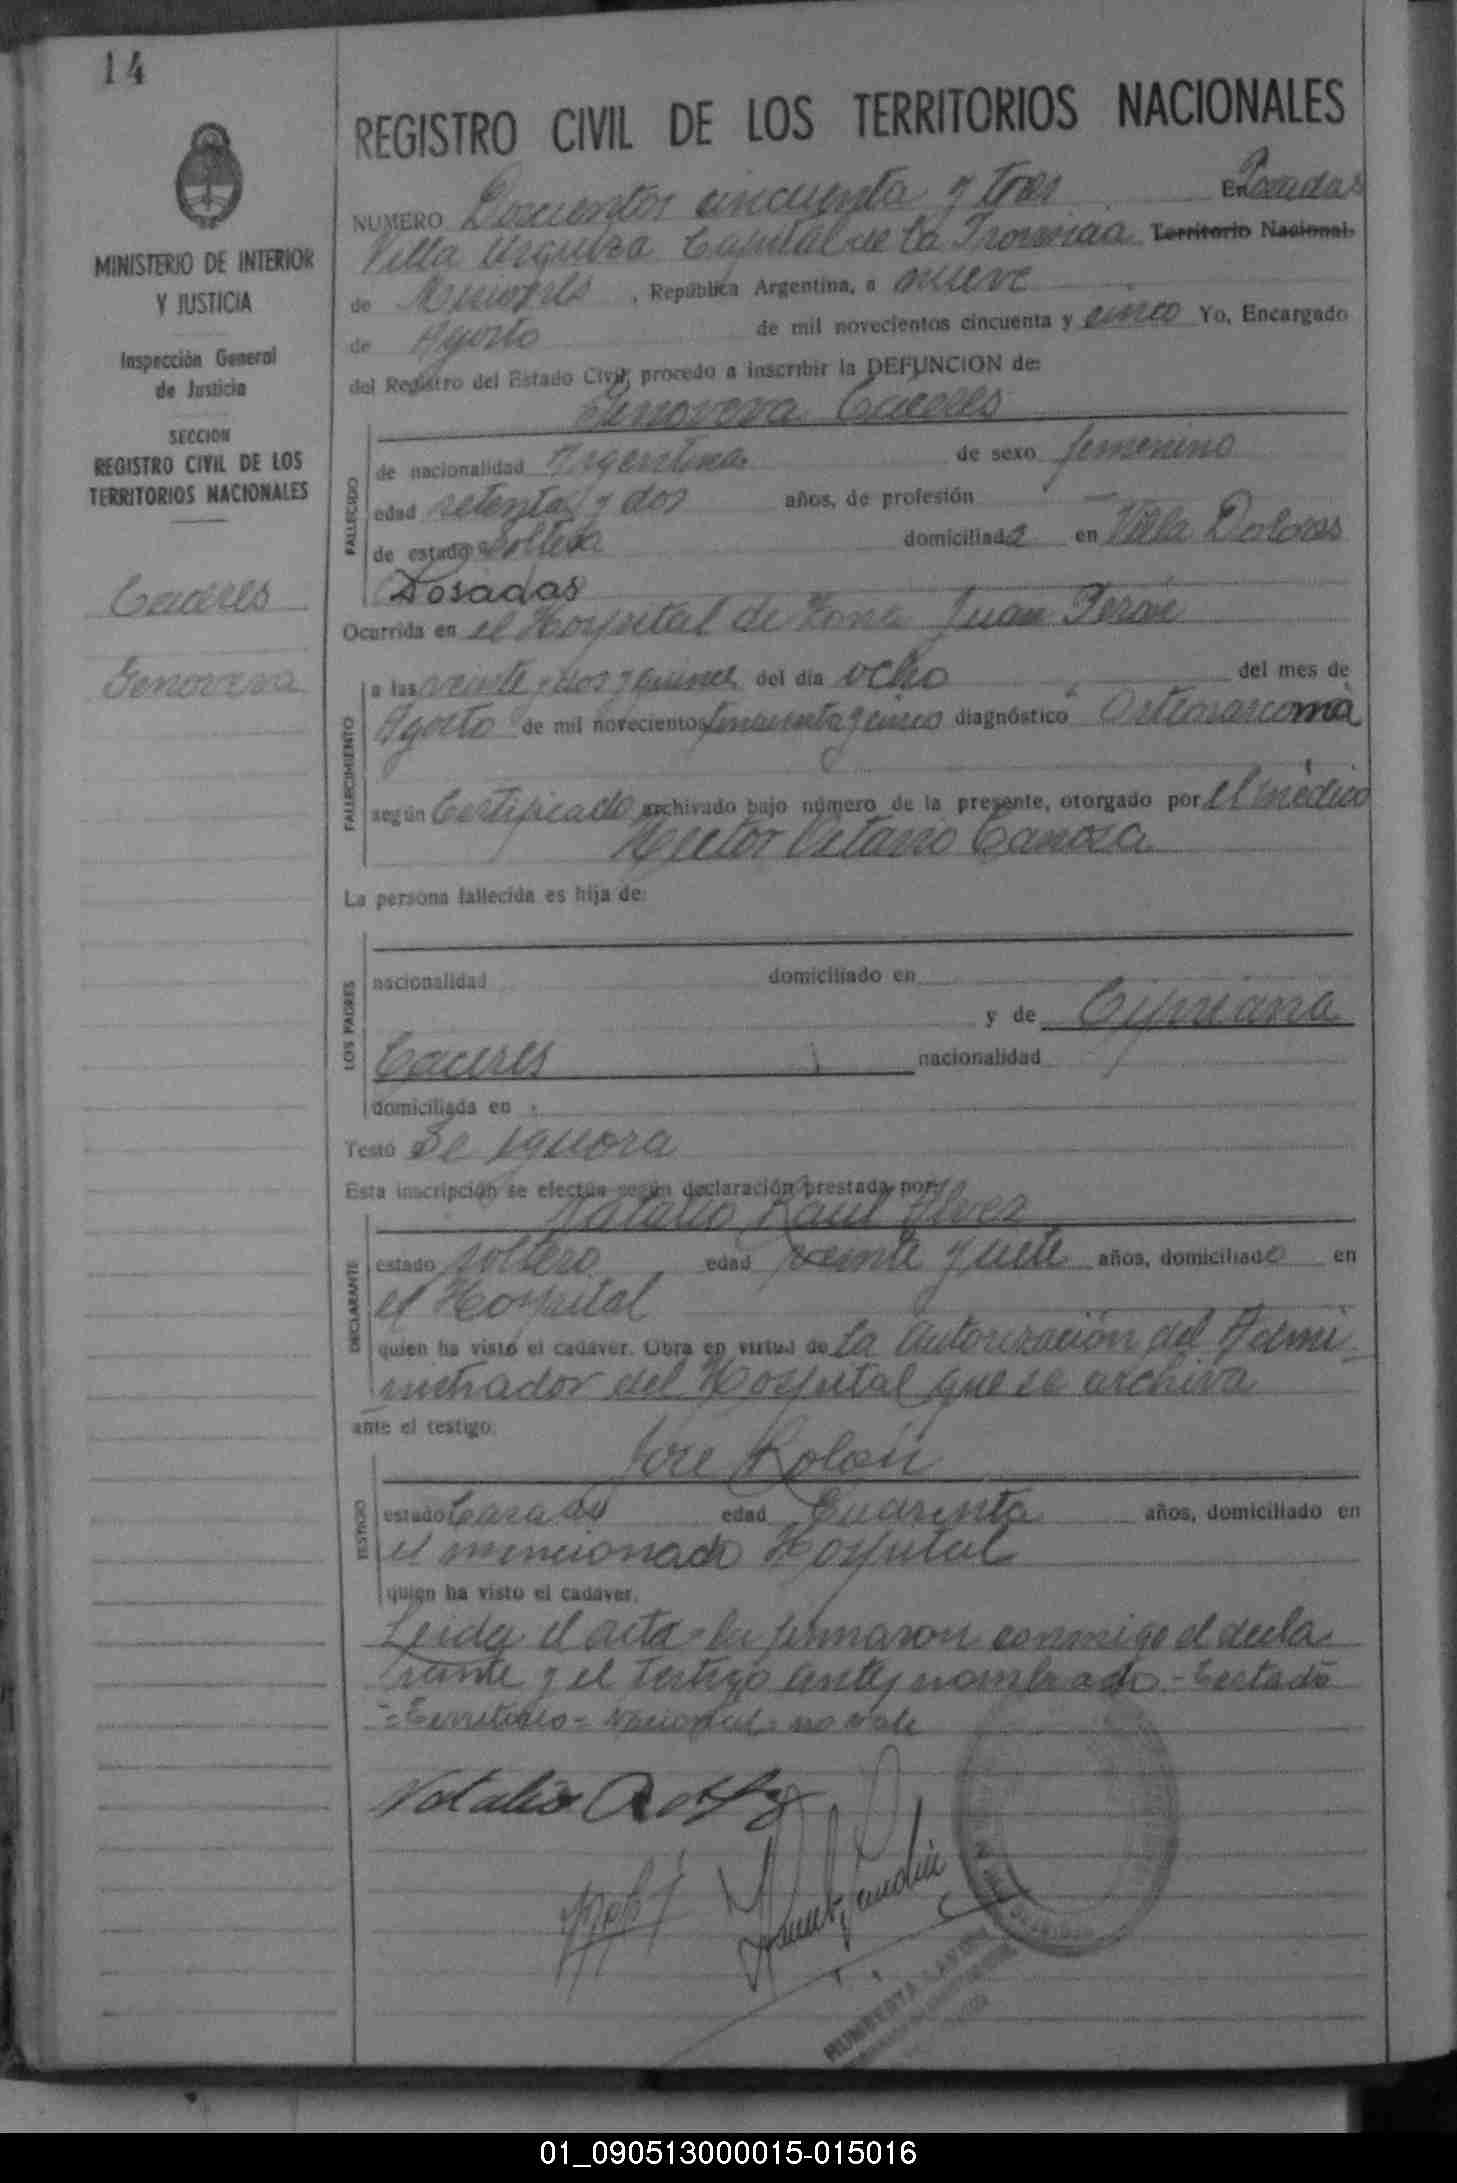 14
REGISTRO CIVIL DE LOS TERRITORIOS NACIONALES
MINISTERIO DE INTERIOR
Y JUSTICIA
Inspección General
de Justicia
SECCION
REGISTRO CIVIL DE LOS
TERRITORIOS NACIONALES
Caceres
Genoveva
NUMERO Doscientos cincuenta y tres En Posadas
Villa Urquiza Capital de la Provincia Territorio Nacional
de Misiones, República Argentina, a nueve
de Agosto de mil novecientos cincuenta y cinco Yo, Encargado
del Registro del Estado Civil, procedo a inscribir la DEFUNCION de:
Genoveva Caceres
FALLECIDO
de nacionalidad Argentina de sexo femenino
edad setenta y dos años, de profesión —
de estado soltera domiciliada en Villa Dolores
Posadas
Ocurrida en el Hospital de Zona Juan Perón
FALLECIMIENTO
a las veinte y dos y quince del día ocho del mes de
Agosto de mil novecientos cincuenta y cinco diagnóstico Osteosarcoma
según Certificado archivado bajo número de la presente, otorgado por el médico
Hector Canosa
La persona fallecida es hija de:
LOS PADRES
nacionalidad domiciliado en
y de Cipriana
Caceres nacionalidad
domiciliada en
Testó Se ignora
Esta inscripción se efectúa según declaración prestada por:
Natalio Raul Alvez
DECLARANTE
estado soltero edad veinte y siete años, domiciliado en
el Hospital
quien ha visto el cadáver. Obra en virtud de la autorización del Admi-
nistrador del Hospital que se archiva
ante el testigo:
Jose Rolón
TESTIGO
estado Casado edad Cuarenta años, domiciliado en
el mencionado Hospital
quien ha visto el cadáver.
Leida el acta la firmaron conmigo el decla
rante y el testigo antes nombrado - Testado
= Territorio = Nacional = no vale
Natalio
HUMBERTA
01_090513000015-015016